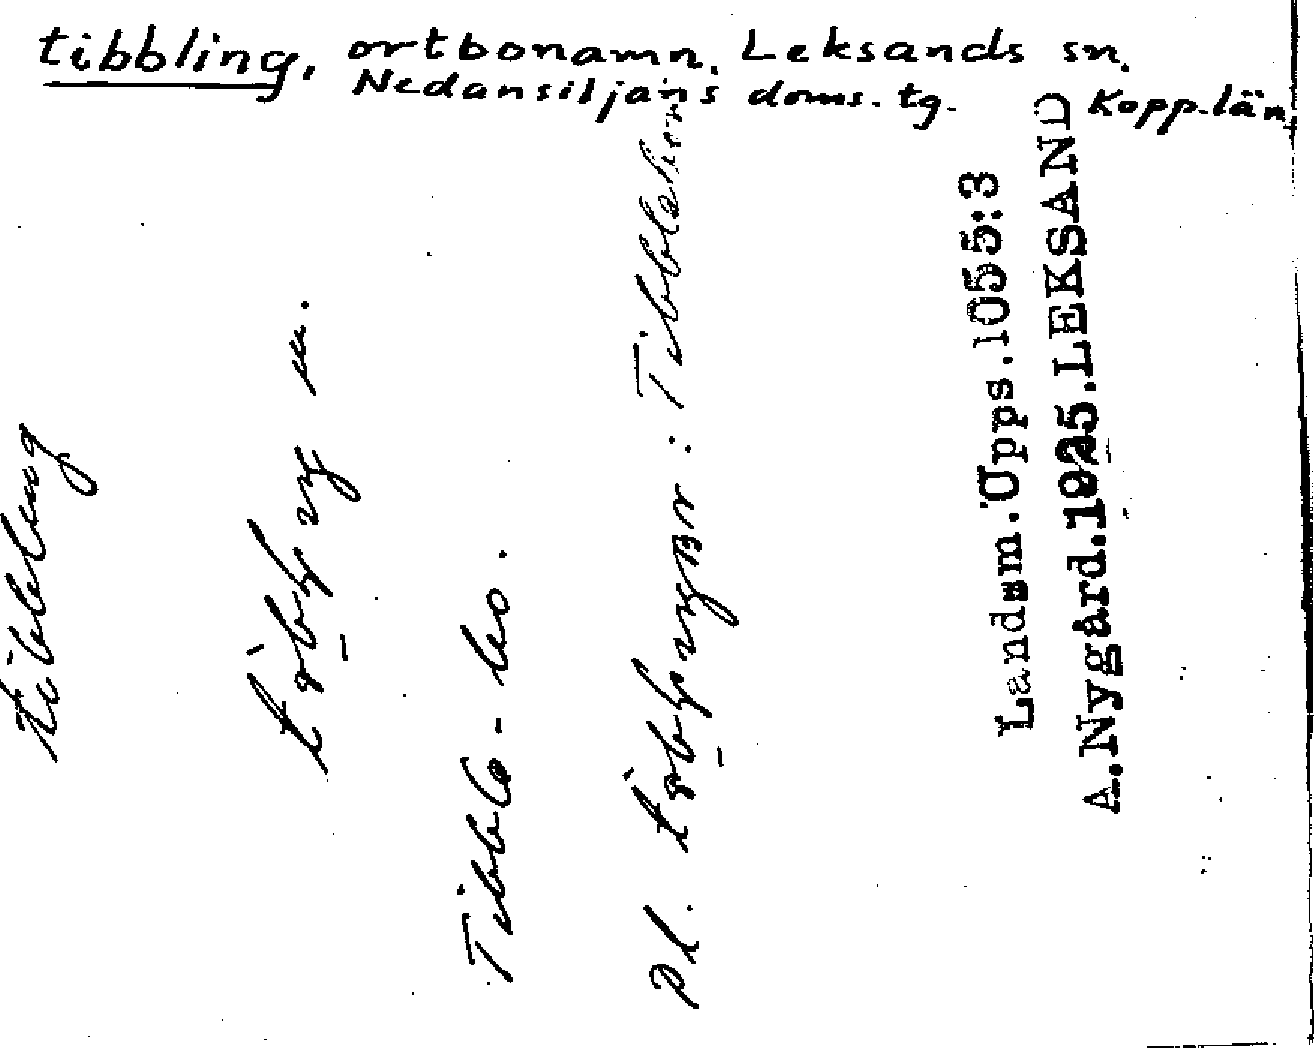 tibbling, ortbonamn. Leksands sn.
Nedansiljans doms. tg. Kopp. län
tibbling
m.
Tibble-bo.
Pl. : Tibblebor
Landsm.Upps.1055:3
A.Nygård.1925.LEKSAND